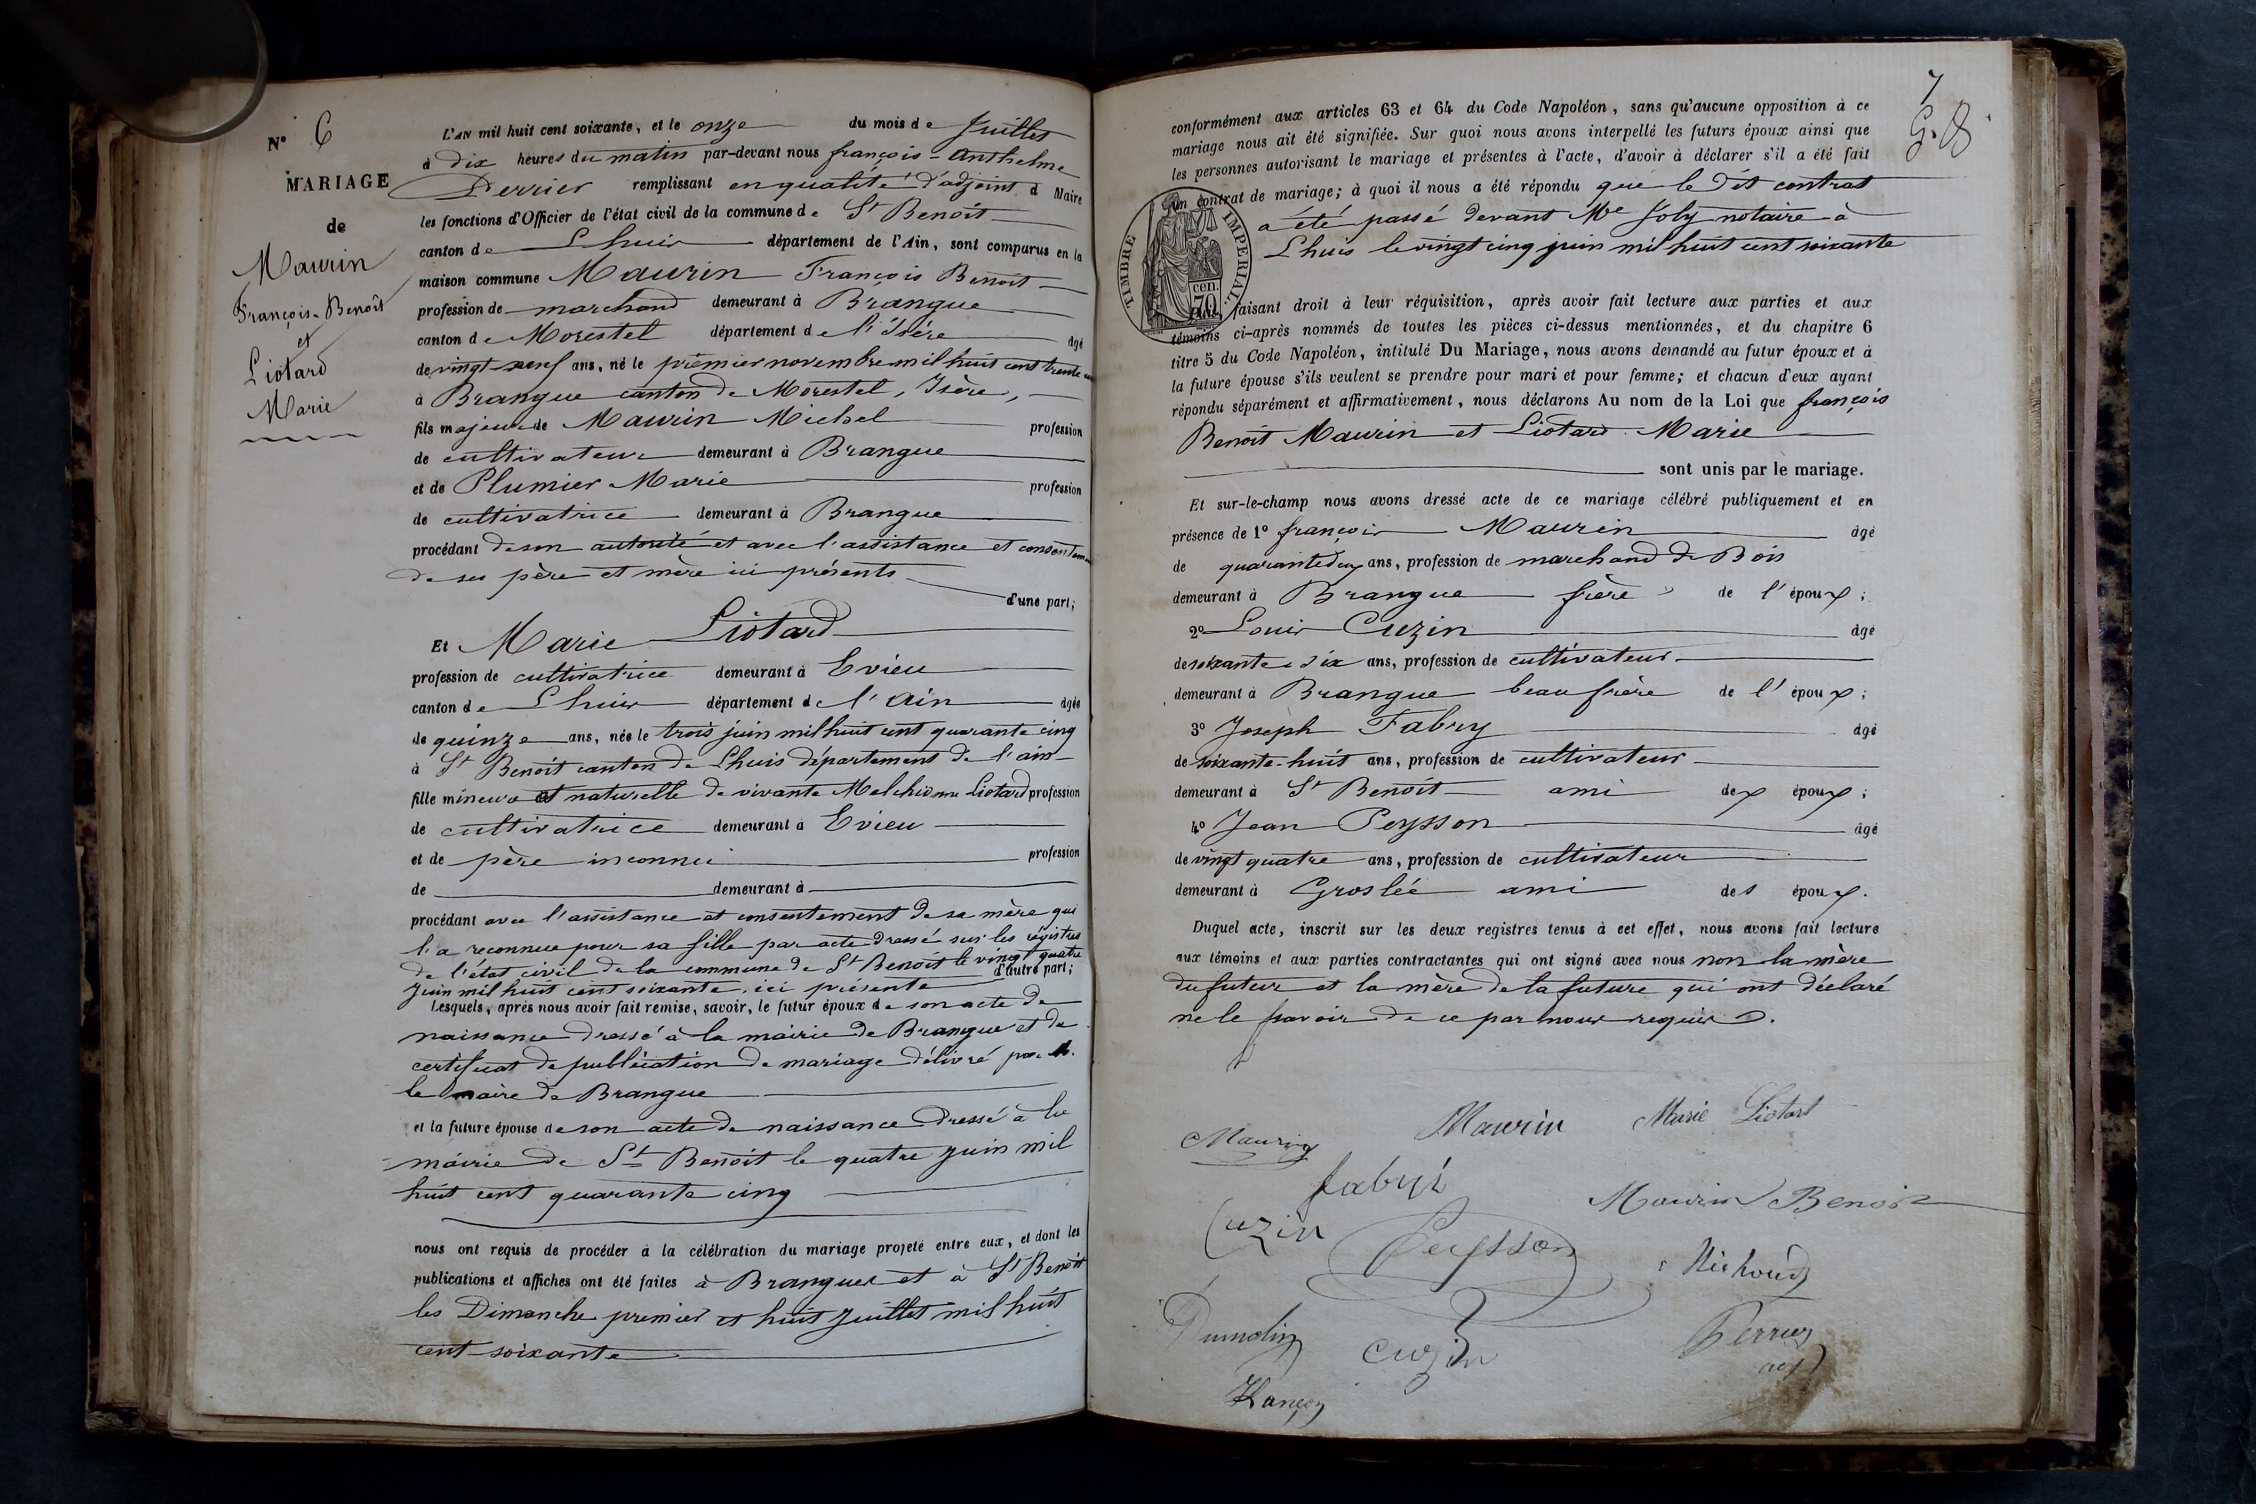 N° 6
MARIAGE
de
Maurin
François-Benoît
et
Liotard
Marie
L'AN mil huit cent soixante, et le onze du mois de Juillet
à dix heures du matin par-devant nous françois-Anthelme
Perrier remplissant en qualité d'adjoint à Maire
les fonctions d'Officier de l'état civil de la commune de St Benoît
canton de Lhuis département de l'Ain, sont comparus en la
maison commune Maurin François Benoit
profession de marchand demeurant à Brangue
canton de Morestel département de l'Isère âgé
de vingt neuf ans, né le premier novembre mil huit cent trente
à Brangue canton de Morestel, Isère,
fils majeur de Maurin Michel profession
de cultivateur demeurant à Brangue
et de Plumier Marie profession
de cultivatrice demeurant à Brangue
procédant de son autorité et avec l'assistance et consentement
de ses père et mère ici présents
d'une part;
Et Marie Liotard
profession de cultivatrice demeurant à Evieu
canton de Lhuis département de l'Ain âgée
de quinze ans, née le trois juin mil huit cent quarante cinq
à St Benoît canton de Lhuis département de l'ain
fille mineure et naturelle de vivante Melchionne Liotard profession
de cultivatrice demeurant à Evieu
et de père inconnu profession
de demeurant à
procédant avec l'assistance et consentement de sa mère qui
l'a reconnue pour sa fille par acte dressé sur les régistres
de l'état civil de la commune de St Benoit le vingt quatre
Juin mil huit cent soixante, ici présente d'autre part;
Lesquels, après nous avoir fait remise, savoir, le futur époux de son acte de
naissance dressé à la mairie de Brangue et de
certificat de publication de mariage délivré par M.
le maire de Brangue
et la future épouse de son acte de naissance dressé à la
mairie de St Benoit le quatre juin mil
huit cent quarante cinq
nous ont requis de procéder à la célébration du mariage projeté entre eux, et dont les
publications et affiches ont été faites à Brangues et à St Benoît
les Dimanche premier et huit juillet mil huit
cent soixante
7
conformément aux articles 63 et 64 du Code Napoléon, sans qu'aucune opposition à ce
mariage nous ait été signifiée. Sur quoi nous avons interpellé les futurs époux ainsi que
les personnes autorisant le mariage et présentes à l'acte, d'avoir à déclarer s'il a été fait
un contrat de mariage; à quoi il nous a été répondu que le dit contrat
a été passé devant Me Joly notaire à
Lhuis le vingt cinq juin mil huit cent soixante
TIMBRE IMPERIAL
70 cen.
faisant droit à leur réquisition, après avoir fait lecture aux parties et aux
témoins ci-après nommés de toutes les pièces ci-dessus mentionnées, et du chapitre 6
titre 5 du Code Napoléon, intitulé Du Mariage, nous avons demandé au futur époux et à
la future épouse s'ils veulent se prendre pour mari et pour femme; et chacun d'eux ayant
répondu séparément et affirmativement, nous déclarons Au nom de la Loi que françois
Benoit Maurin et Liotard Marie
sont unis par le mariage.
Et sur-le-champ nous avons dressé acte de ce mariage célébré publiquement et en
présence de 1° françois Maurin âgé
de quarante deux ans, profession de marchand de Bois
demeurant à Brangue frère de l'époux;
2° Louis Cuzin âgé
de soixante six ans, profession de cultivateur
demeurant à Brangue beau frère de l'époux;
3° Joseph Fabry âgé
de soixante-huit ans, profession de cultivateur
demeurant à St Benoît ami des époux;
4° Jean Peysson âgé
de vingt quatre ans, profession de cultivateur
demeurant à Groslée ami des époux.
Duquel acte, inscrit sur les deux registres tenus à cet effet, nous avons fait lecture
aux témoins et aux parties contractantes qui ont signé avec nous non la mère
du futur et la mère de la future qui ont déclaré
ne le savoir de ce par nous requis.
Maurin Maurin Marie Liotard
Fabry
Cuzin Maurin Benoit
Peysson
Michoud
Dumolin Cuzin Perrier
adj